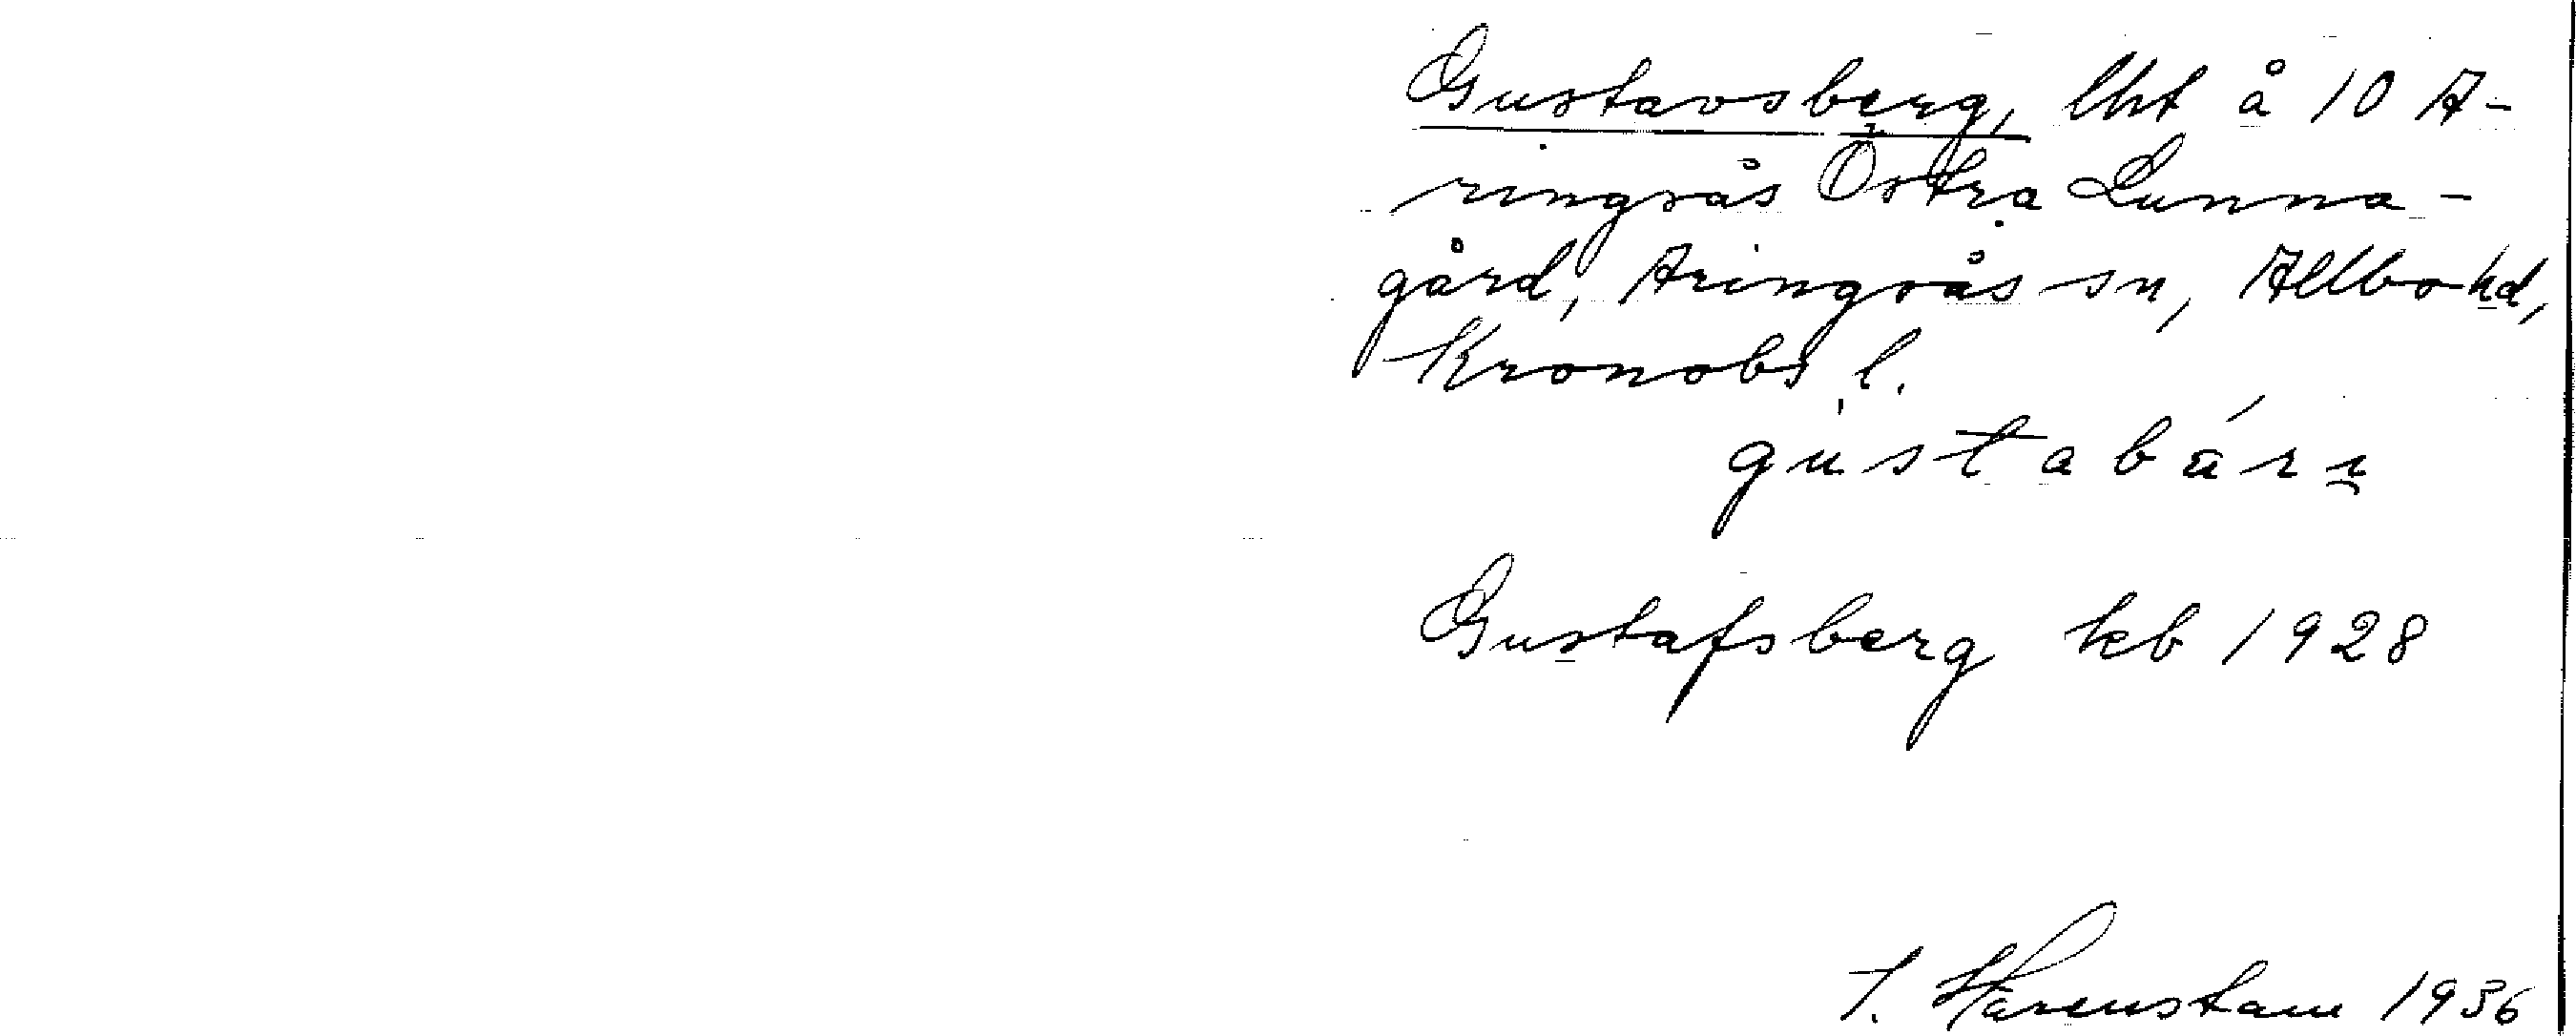 Gustavsberg, lht å 10 A-
ringsås Östra Lunna-
gård, Aringsås sn, Allbo hd,
Kronobs l.
gústabárɪ
Gustafsberg kb 1928
T. Harenstam 1936